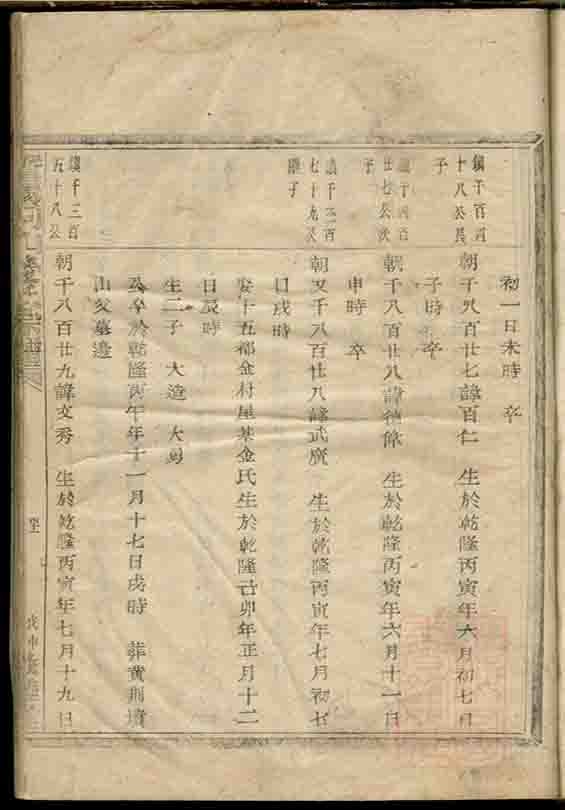 初一日未時 卒
鎮千百四
十八公長
子
朝千八百廿七諱百仁 生於乾隆丙寅年六月初七日
子時 卒
鎮千四百
廿七公次
子
朝千八百廿八諱德偉 生於乾隆丙寅年六月十一日
申時 卒
鎮千二百
七十九公
繼子
朝又千八百廿八諱武廣 生於乾隆丙寅年七月初七
日戌時
娶十五都金村屋基金氏生於乾隆己卯年正月十二
日辰時
生二子 大造 大
公卒於乾隆丙午年十一月十七日戌時 葬黄荆墳
山父墓邊
鎮千三百
五十八公
朝千八百廿九諱文秀 生於乾隆丙寅年七月十九日